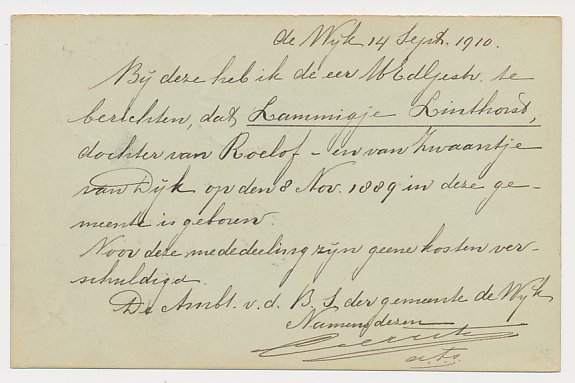 de Wijk 14 Sept. 1910.
Bij deze heb ik de eer UEdGestr. te
berichten, dat Lammigje Linthorst,
dochter van Roelof - en van Zwaantje
van Dijk op den 8 Nov. 1889 in deze ge-
meente is geboren.
Voor deze mededeeling zijn geene kosten ver-
schuldigd.
De Ambt. v. d. B. S. der gemeente de Wijk
Namens dezen